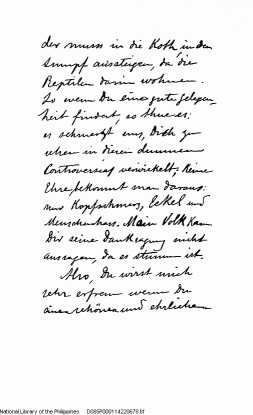 der muss in die Koth, in den
Sumpf aussteigen, da die
Reptilen darin wohnen.
So wenn Du eine gute gelegen-
heit findest, so thue es:
es schmertzt uns, Dich zu
sehen in diesen dummen
Controversias verwickelt; Keine
Ehre bekommt man daraus:
nur Kopfschmerz, Eckel und
Menschenhass. Mein Volk kann
Dir seine Danksagung nicht
aussagen, da es stumm ist.
Also, Du wirst mich
sehr erfreuen wenn Du
einen schönen und ehrlichen
National Library of the Philippines D085P000114220678.tif